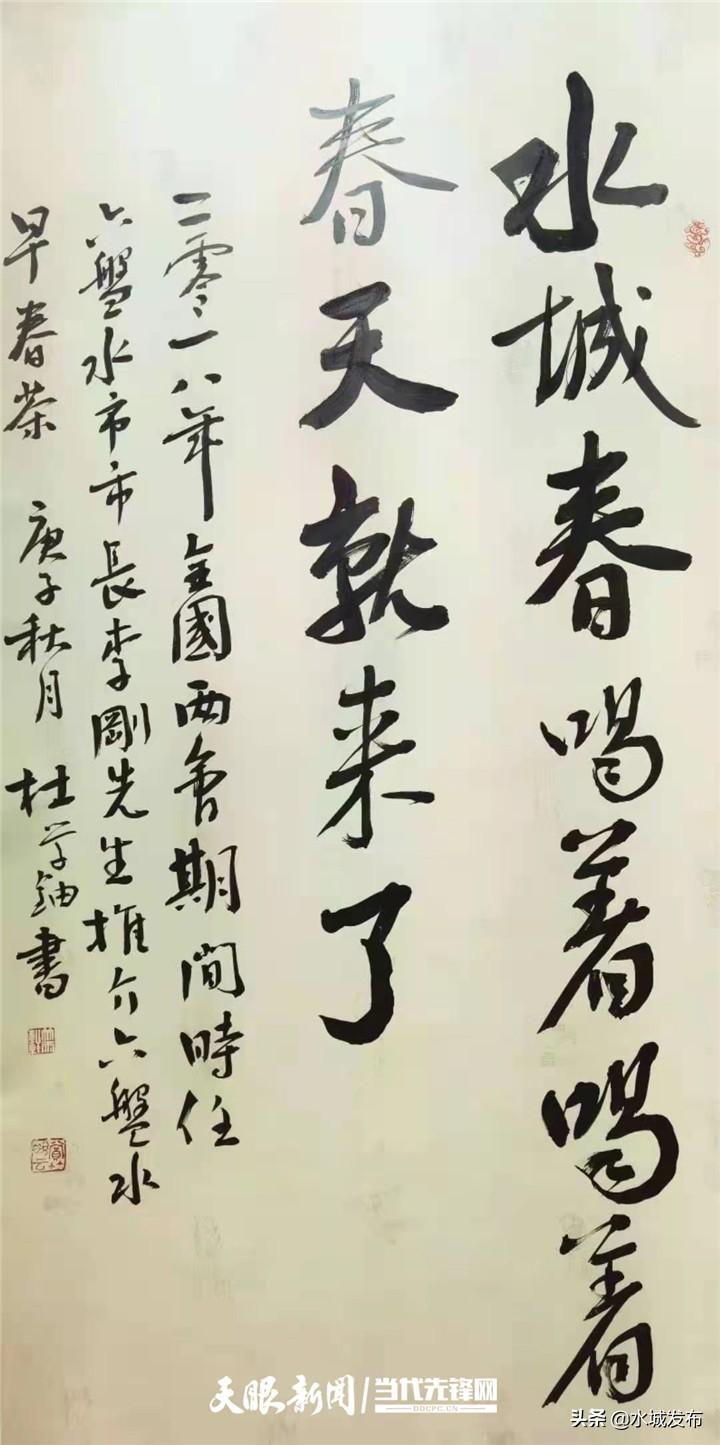 水城春喝着喝着
春天就来了
二零一八年全國两會期间時任
六盤水市市長李剛先生推介六盤水
早春茶 庚子秋月 杜学铀書
天眼新闻 当代先锋网
DDCPC.CN
头条 @水城发布